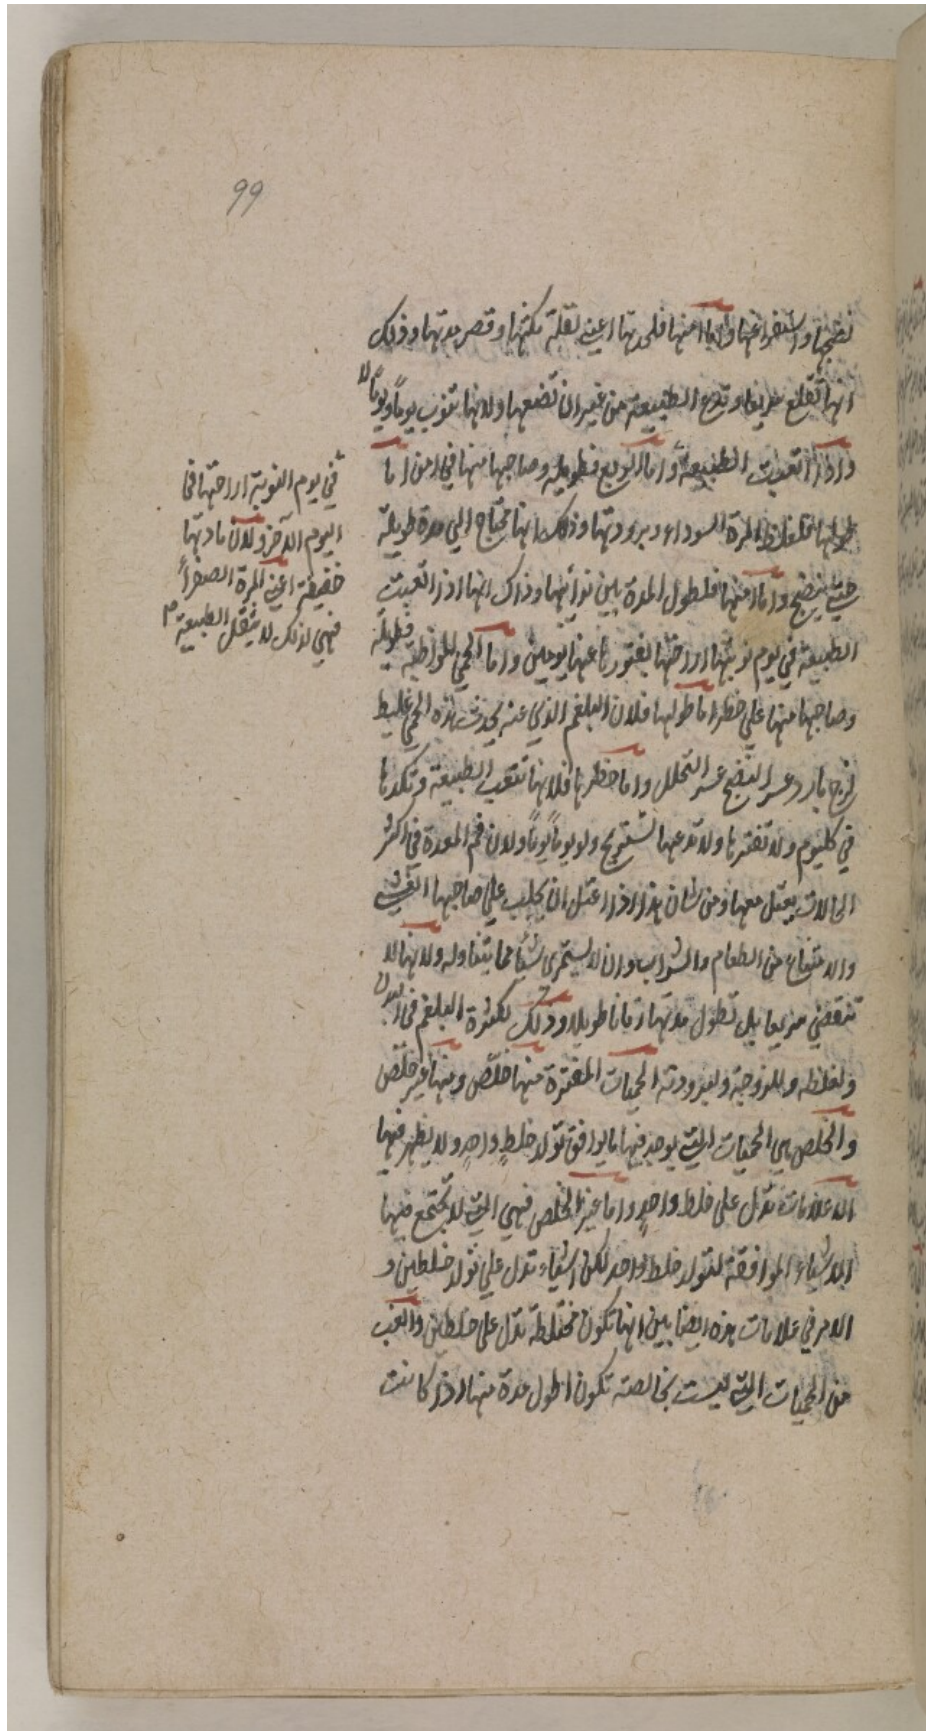 99
نضجها واستفراغها واما امنها فلحدتها اعني لقلة مكثها وقصر مدتها وذلك
انها تقلع سريعا وتدع الطبيعة من غير ان تضعفها ولانها تنوب يوماً ويوماً لا
واذا اتعبت الطبيعة واما الربع فطويلة وصاحبها منها في امن اما
طولها فلغلظ المرة السوداء وبرودتها وذلك انها تحتاج الي مدة طويلة
حتي ينضج واما امنها فلطول المدة بين نوائبها وذاك انها اذا اتعبت
الطبيعة في يوم نوبتها اراحتها بفتورها عنها يومين واما الحمي المواظبة فطويلة
وصاحبها منها علي خطر اما طولها فلان البلغم الذي عنه يحدث هذه الحمي غليظ
لزج بارد عسر النضج عسر التحلل واما خطرها فلانها تتعب الطبيعة وتكدها
في كل يوم ولا تفترها ولا تدعها تستريح ولو يوماً يوماً ولان فم المعدة في اكثر
الحالات يعتل معها ومن شان هذا اذا اعتل ان يجلب علي صاحبها الغشي
والامتناع من الطعام والشراب وان لا يستمري شيئا مما يتناوله ولانها لا
تنقضي سريعا بل تطول مدتها زمانا طويلا وذلك لكثرة البلغم في البدن
ولغلظه وللزوجته ولبرودته الحميات المفترة منها خلّص ومنها غير خلّص
والخلص هي الحميات التي يوجد فيها ما يوافق تولد خلطٍ واحدٍ ولا يظهر فيها
الا علامات تدل علي خلط واحدٍ واما غير الخلص فهي التي لا تجتمع فيها
الاشياء الموافقة لتولد خلط واحد لكن اشياء تدل علي تولد خلطين و
الامر في علامات هذه ايضا بين انها تكون مختلطة تدل علي خلطين والغب
من الحميات التي ليست بخالصة تكون اطول مدة منها اذا كانت
في يوم النوبة اراحتها في
اليوم الآخر ولان مادتها
خفيفة اعني المرة الصفراً
فهي لذلك لا يثقل الطبيعة